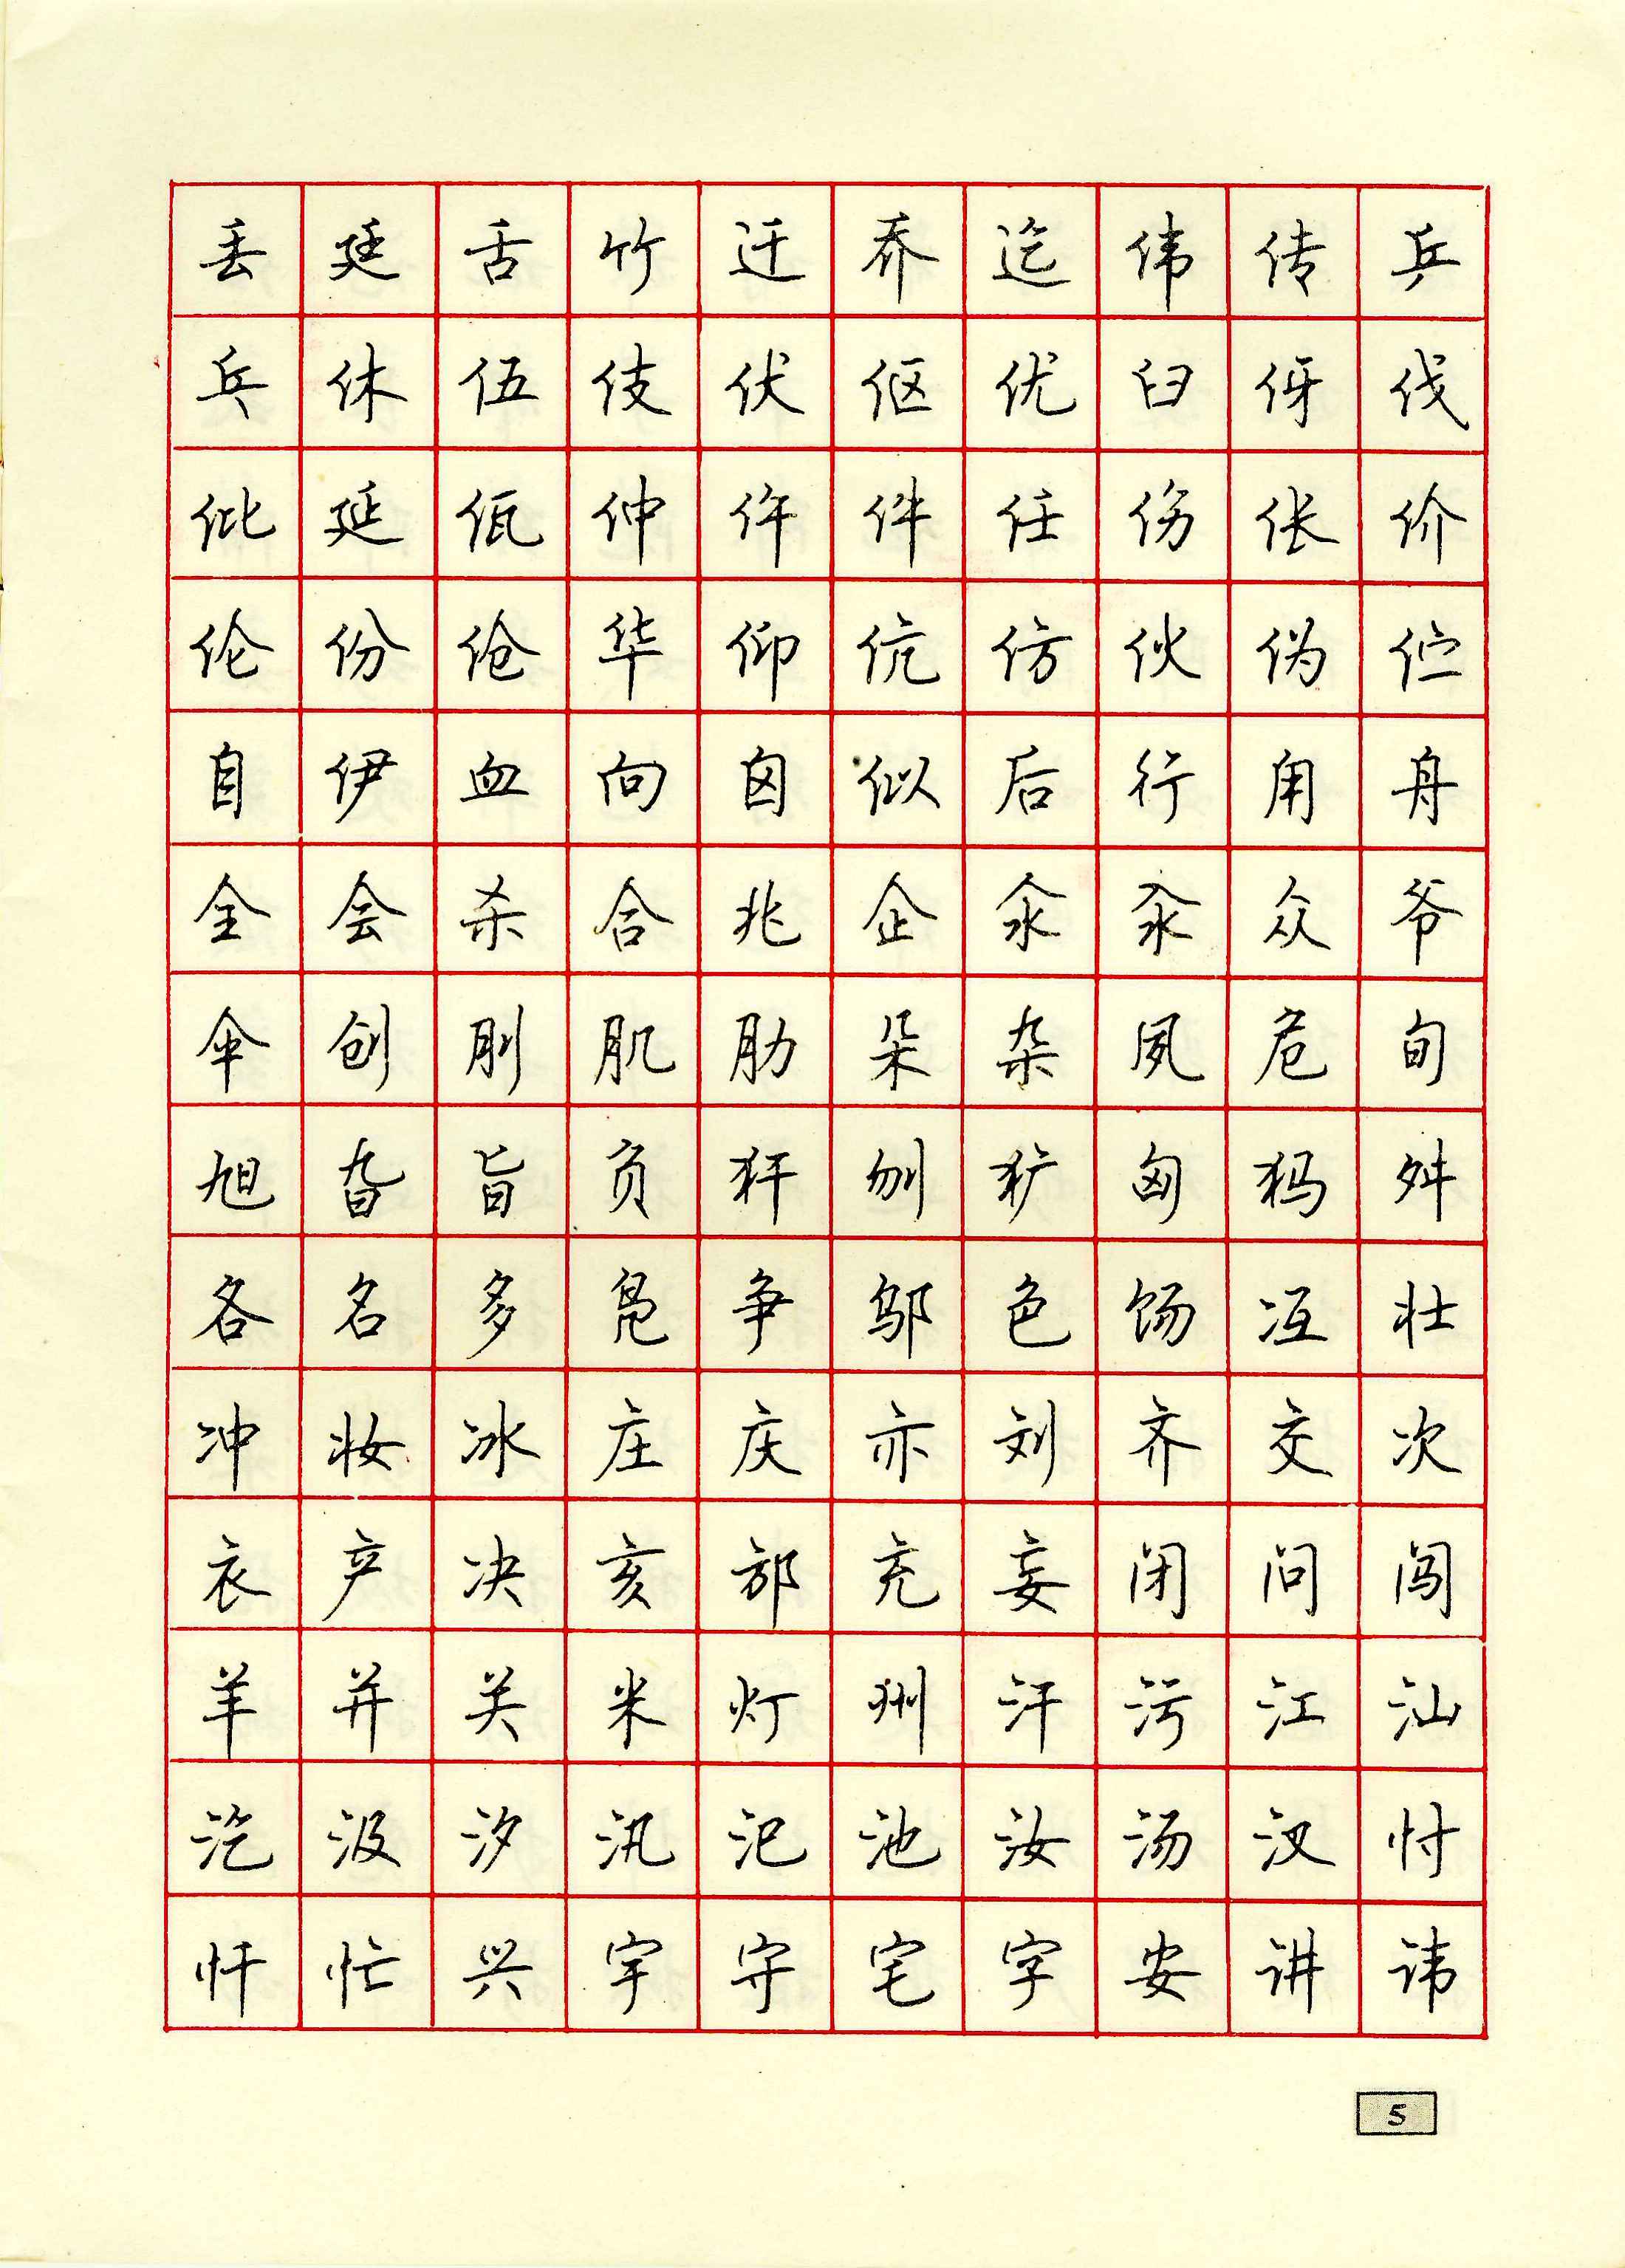 丢廷舌竹迁乔迄伟传乒
乓休伍伎伏伛优臼伢伐
仳延佤仲仵件任伤伥价
伦份伧华仰伉仿伙伪伫
自伊血向囟似后行甪舟
全会杀合兆企汆氽众爷
伞创刖肌肋朵杂夙危旬
旭旮旨负犴刎犷匈犸舛
各名多凫争邬色饧冱壮
冲妆冰庄庆亦刘齐交次
衣产决亥邡充妄闭问闯
羊并关米灯州汗污江汕
汔汲汐汛汜池汝汤汊忖
忏忙兴宇守宅字安讲讳
5